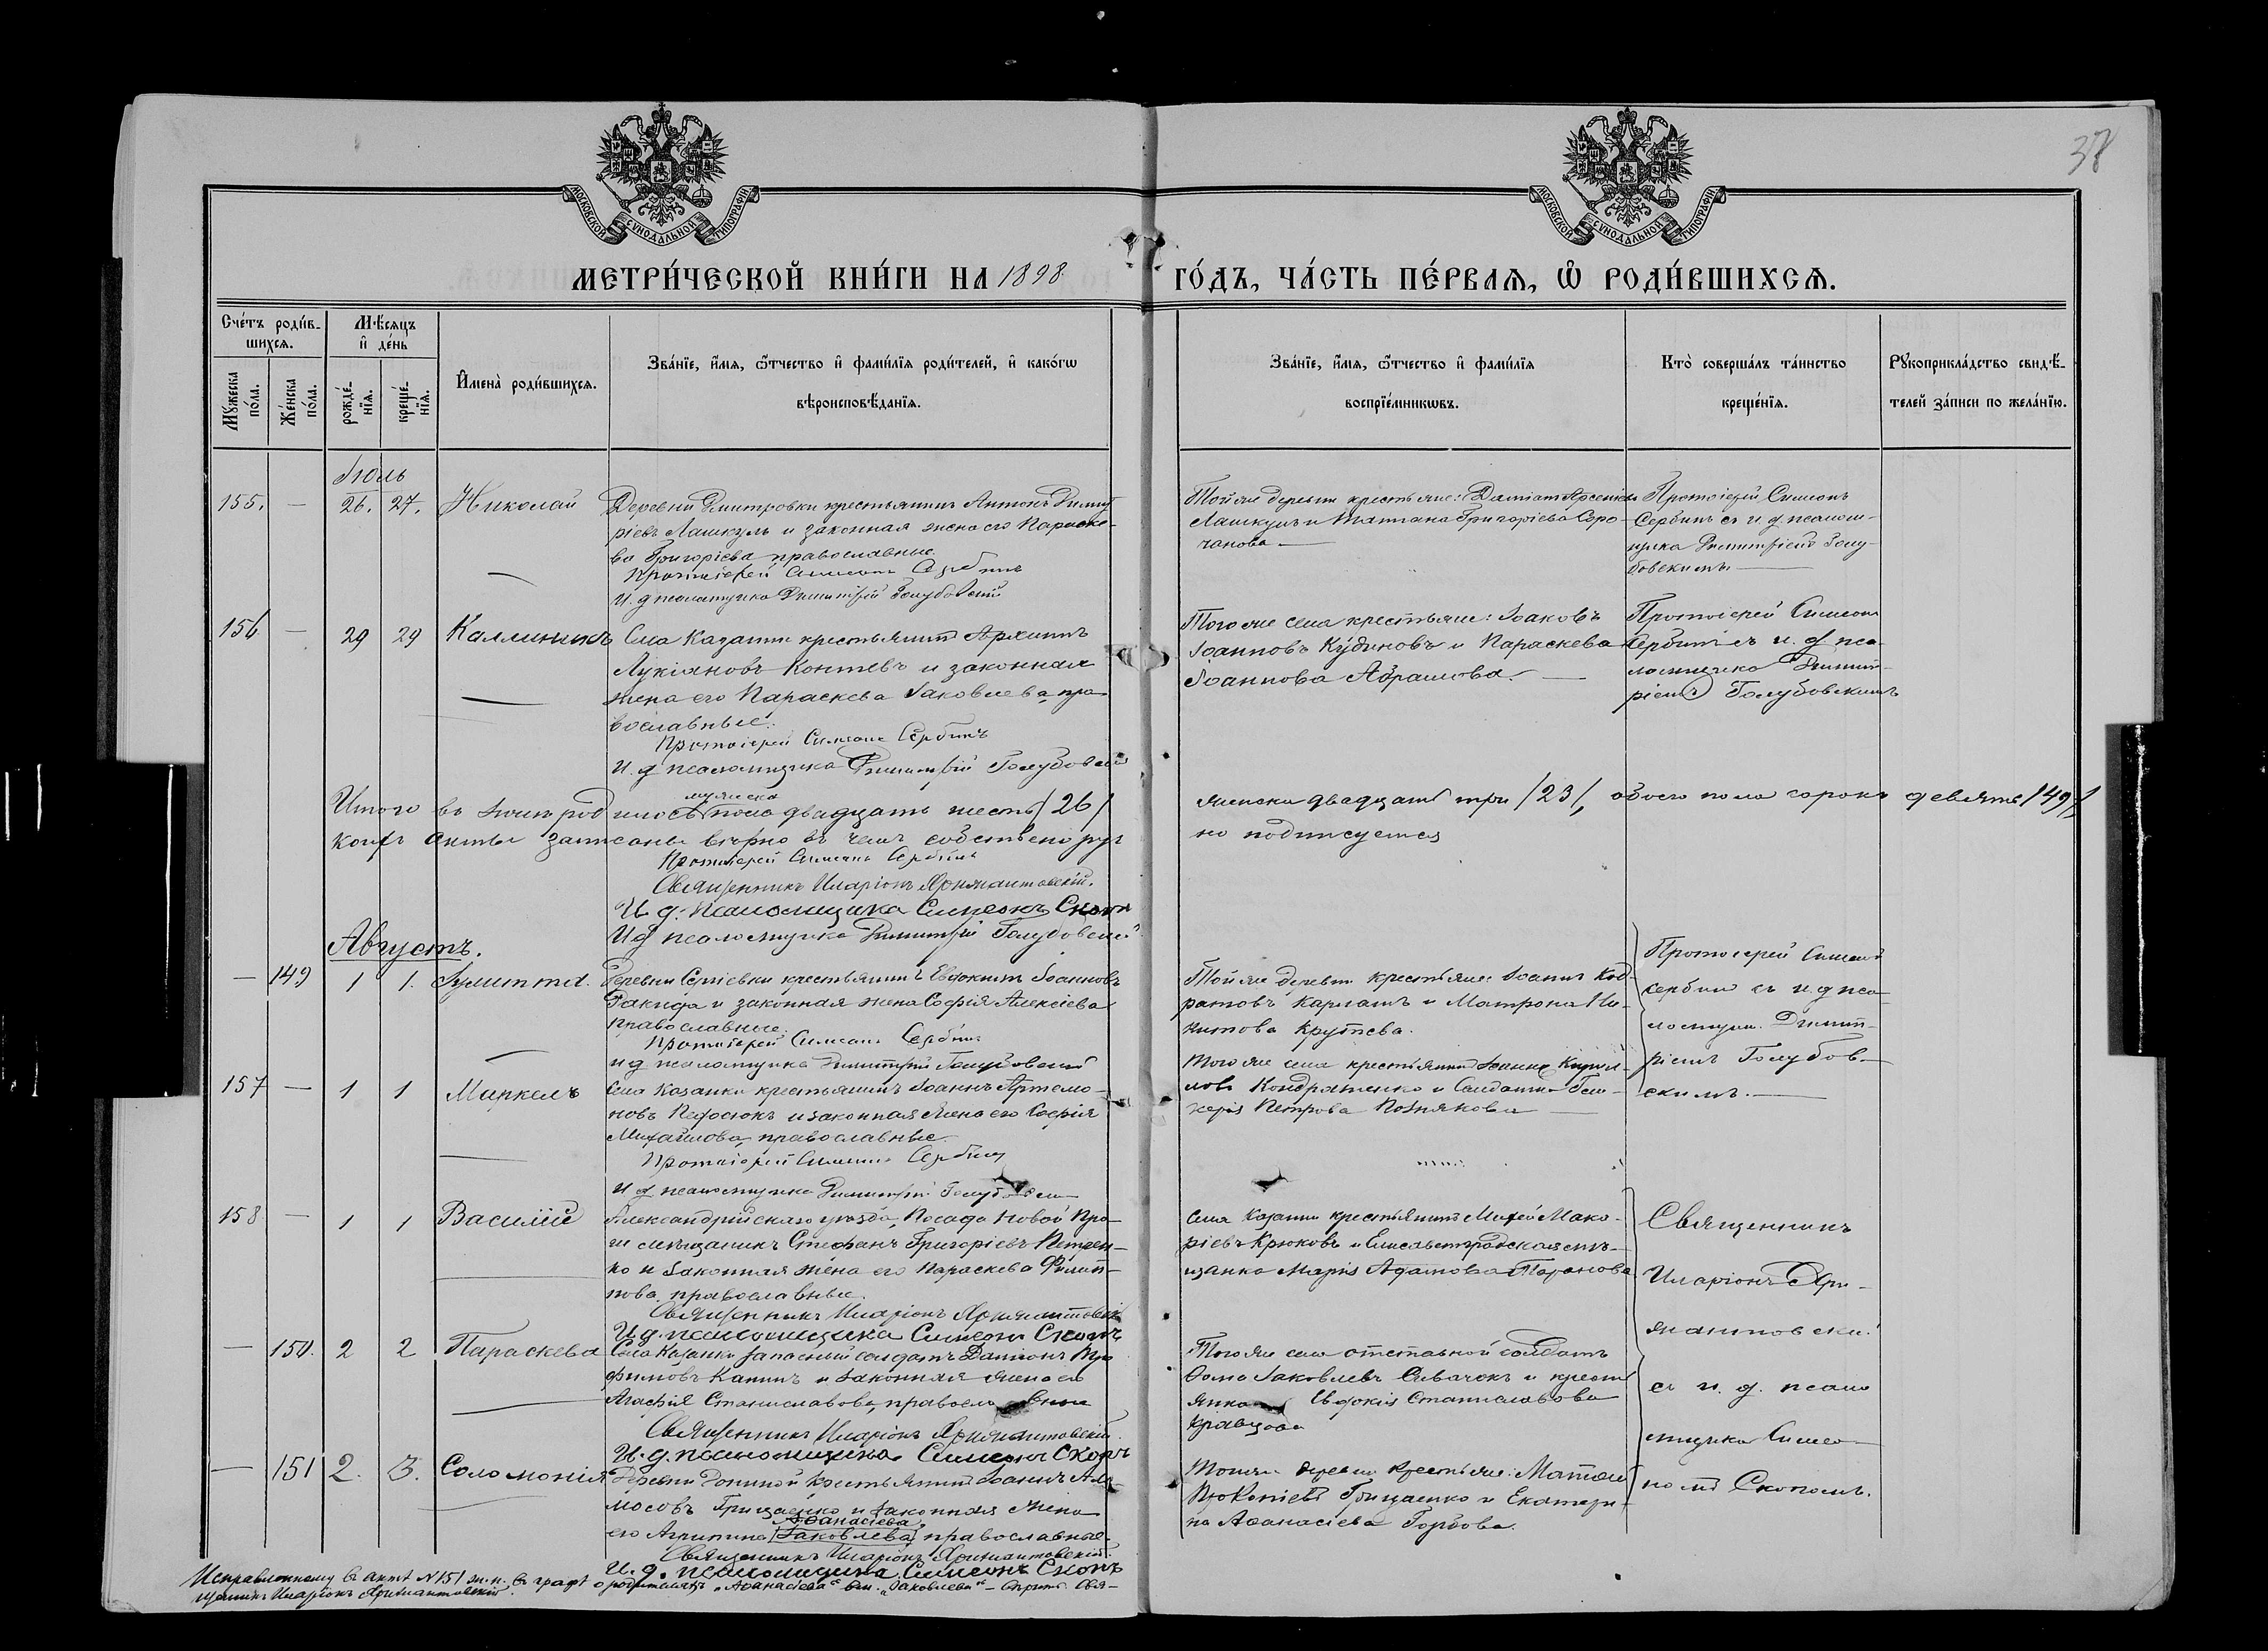 38
МОСКОВСКОЙ СѴНОДАЛЬНОЙ ТИПОГРАФІИ
МОСКОВСКОЙ СѴНОДАЛЬНОЙ ТИПОГРАФІИ
МЕТРИ́ЧЕСКОЙ КНИ́ГИ НА 1898 ГО́ДЪ, ЧА́СТЬ ПЕ́РВАѦ, Ѽ РОДИ́ВШИХСѦ.
Сче́тъ роди́в-
шихсѧ.
Мѣ́сѧцъ
и҆ де́нь
Мꙋ́жеска
по́ла.
Же́нска
по́ла.
рожде́-
нїѧ.
креще́-
нїѧ.
И҆мена̀ роди́вшихсѧ.
Зва́нїе, и҆́мѧ, ѻ҆́тчество и҆ фами́лїѧ роди́телей, и҆ како́гѡ
вѣроисповѣ́данїѧ.
Зва́нїе, и҆́мѧ, ѻ҆́тчество и҆ фами́лїѧ
воспрїе́мникѡвъ.
Кто̀ соверша́лъ та́инство
креще́нїѧ.
Рꙋкоприкла́дство свидѣ́-
телей за́писи по жела́нїю.
Іюль
155. — 26. 27. Николай
Деревни Дмитровки крестьянинъ Антонъ Димит
ріевъ Лашкулъ и законная жена его Параске-
ва Григоріева православные
Протоіерей Симеонъ Сербинъ
И. д псаломщика Димитрій Голубовскій
Той же деревни крестьяне: Даміанъ Арсеніевъ
Лашкулъ и Татіана Григоріева Соро-
чанова —
Протоіерей Симеонъ
Сербинъ съ и. д. псалом-
щика Димитріемъ Голу-
бовскимъ —
156 — 29 29 Каллиникъ
Села Казанки крестьянинъ Архипъ
Лукіановъ Контевъ и законная
жена его Параскева Іаковлева, пра
вославные.
Протоіерей Симеонъ Сербинъ
И. д псаломщика Димитрій Голубовскій
Того же села крестьяне: Іаковъ
Іоанновъ Кудиновъ и Параскева
Іоаннова Абрамова. —
Протоіерей Симеонъ
Сербинъ съ и. д. пса-
ломщика Димит-
ріемъ Голубовскимъ
Итого въ іюлѣ родилось мужска пола двадцать шесть /26/ женска двадцать три /23/, обоего пола сорокъ девять /49/,
коихъ акты записаны вѣрно въ чемъ собственоруч но подписуемся
Протоіерей Симеонъ Сербинъ
Священникъ Иларіонъ Яржиантовскій.
И. д. псаломщика Симеонъ Скопъ
И д псаломщика Димитрій Голубовскій
Августъ.
— 149 1 1. Іулитта.
Деревни Сергіевки крестьянинъ Евдокимъ Іоанновъ
Ракида и законная жена Софія Алексіева
православные.
Протоіерей Симеонъ Сербинъ
и д псаломщика Димитрій Голубовскій
Той же деревни крестьяне Іоаннъ Код-
ратовъ Карпашъ и Матрона Ни-
китова Крутева.
Протоіерей Симеонъ
Сербинъ съ и. д пса-
ломщик. Димит-
ріемъ Голубов-
скимъ. —
157 — 1 1 Маркелъ
Села Казанки крестьянинъ Іоаннъ Артемо-
новъ Педосюкъ и законная жена его Софія
Михайлова, православные.
Протоіерей Симеонъ Сербинъ
И д псаломщика Димитрій Голубовскій
Того же села крестьянинъ Іоаннъ Кирил-
ловъ Кондратенко и Солдатка Гли-
керія Петрова Познякова —
158 — 1 1 Василій
Александрійскаго уѣзда, Посада Новой Пра-
ги мѣщанинъ Стефанъ Григоріевъ Петрен-
ко и законная жена его Параскева Филип-
пова, православные.
Священникъ Иларіонъ Яржиантовскій
И. д. псаломщика Симеонъ Скопъ
Села Казанки крестьянинъ Мохей Мака-
ріевъ Крюковъ и Елисаветградская мѣ-
щанка Марія Адамова Таранова
Священникъ
Иларіонъ Яржи-
жантовскій
съ и. д. псало
мщика Симео-
номъ Скопомъ.
— 150. 2 2 Параскева
Села Казанки запасный солдатъ Даміанъ Тро
фимовъ Капинъ и законная жена его
Агафія Станиславова, православные
Священникъ Иларіонъ Яржиантовскій.
И. д. псаломщика Симеонъ Скопъ
Того же села отставной солдатъ
Ѳома Іаковлевъ Сивачокъ и кресть
янка Евдокія Станиславова
Кравцова
— 151 2. 3. Соломонія
Деревни Дониной крестьянинъ Іоаннъ Ам-
мосовъ Грищенко и законная жена
Аѳанасіева
его Агрипина /Іаковлева/, православные.
Священникъ Иларіонъ Яржиантовскій.
И. д. псаломщика Симеонъ Скопъ
Той же деревни крестьяне: Матѳей
Прокопіевъ Грищенко и Екатери-
на Аѳанасіева Горбова.
Исправленному въ актѣ №151 ж. п. въ графѣ о родителяхъ „Аѳанасіева“ вм. „Іаковлева“ — Свя-
щенникъ Иларіонъ Яржиантовскій.